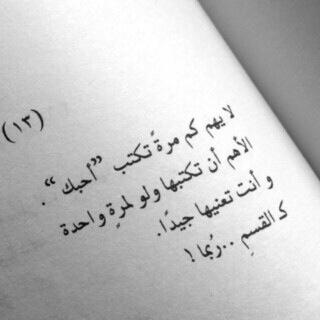 (١٣)
لا يهم كم مرةً تكتب "أحبك".
الأهم أن تكتبها ولو لمرةٍ واحدة
و أنت تعنيها جيدًا.
كـ القسمِ ..ربُما !